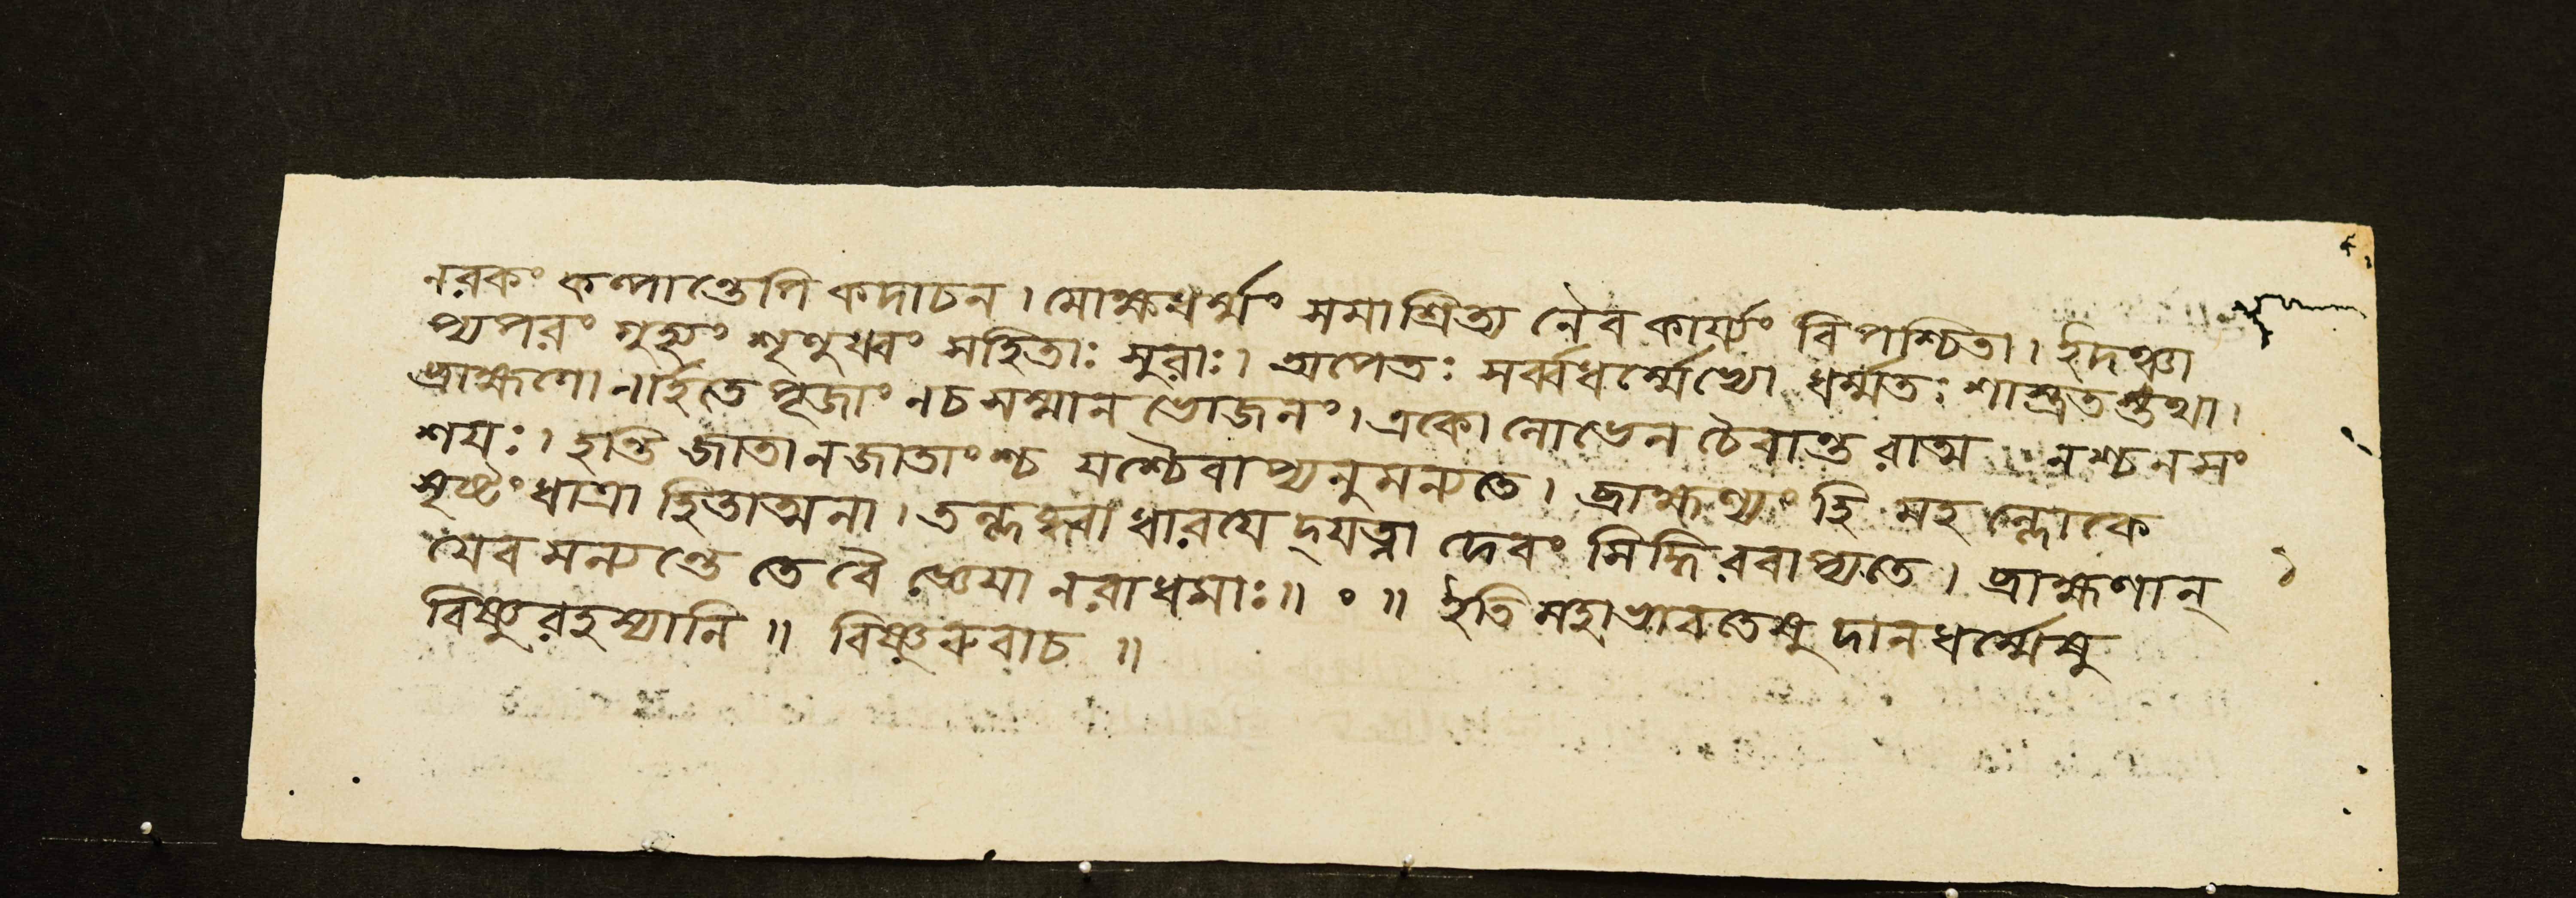 নরকং কল্পান্তেপি কদাচন। মোক্ষধর্ম্মং সমাশ্রিত্য নৈব কার্য্যং বিপশ্চিতা। ইদঞ্চা
প্যপরং গুহ্যং শৃণুধ্বং সহিতাঃ সুরাঃ। অপেতঃ সর্ব্বধর্ম্মেভ্যো ধর্ম্মতঃ শাস্ত্রতস্তথা।
ব্রাহ্মণো নার্হতে পূজাং নচ সম্মান ভোজনং। একো লোভেন চৈবান্তরাত্ম নশ্চ নসং
শয়ঃ। হন্তি জাতানজাতাংশ্চ যশ্চৈবাপ্যনুমন্যতে। ব্রাহ্মণ্যং হি মহল্লোকে
সৃষ্টং ধাত্রা হিতাত্মনা। তল্লব্ধ্বা ধারয়েদ্যত্না দেবং সিদ্ধিরবাপ্যতে। ব্রাহ্মণান্
যেবমন্যন্তে তে বৈ জ্ঞেয়া নরাধমাঃ॥ ॰ ॥ ইতি মহাভারতেষু দানধর্ম্মেষু
বিষ্ণুরহস্যানি ॥ বিষ্ণুরুবাচ ॥